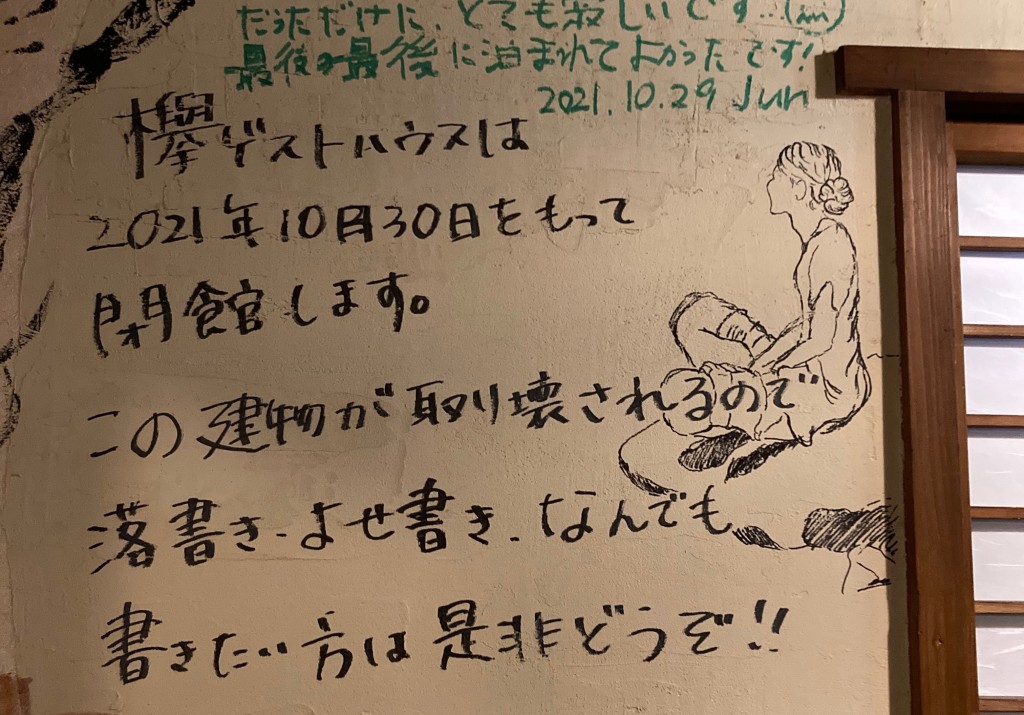 だっただけに、とても寂しいです...(m)
最後の最後に泊まれてよかったです!
2021.10.29 Jun
欅ゲストハウスは
2021年10月30日をもって
閉館します。
この建物が取り壊されるので
落書き・よせ書き、なんでも
書きたい方は是非どうぞ!!